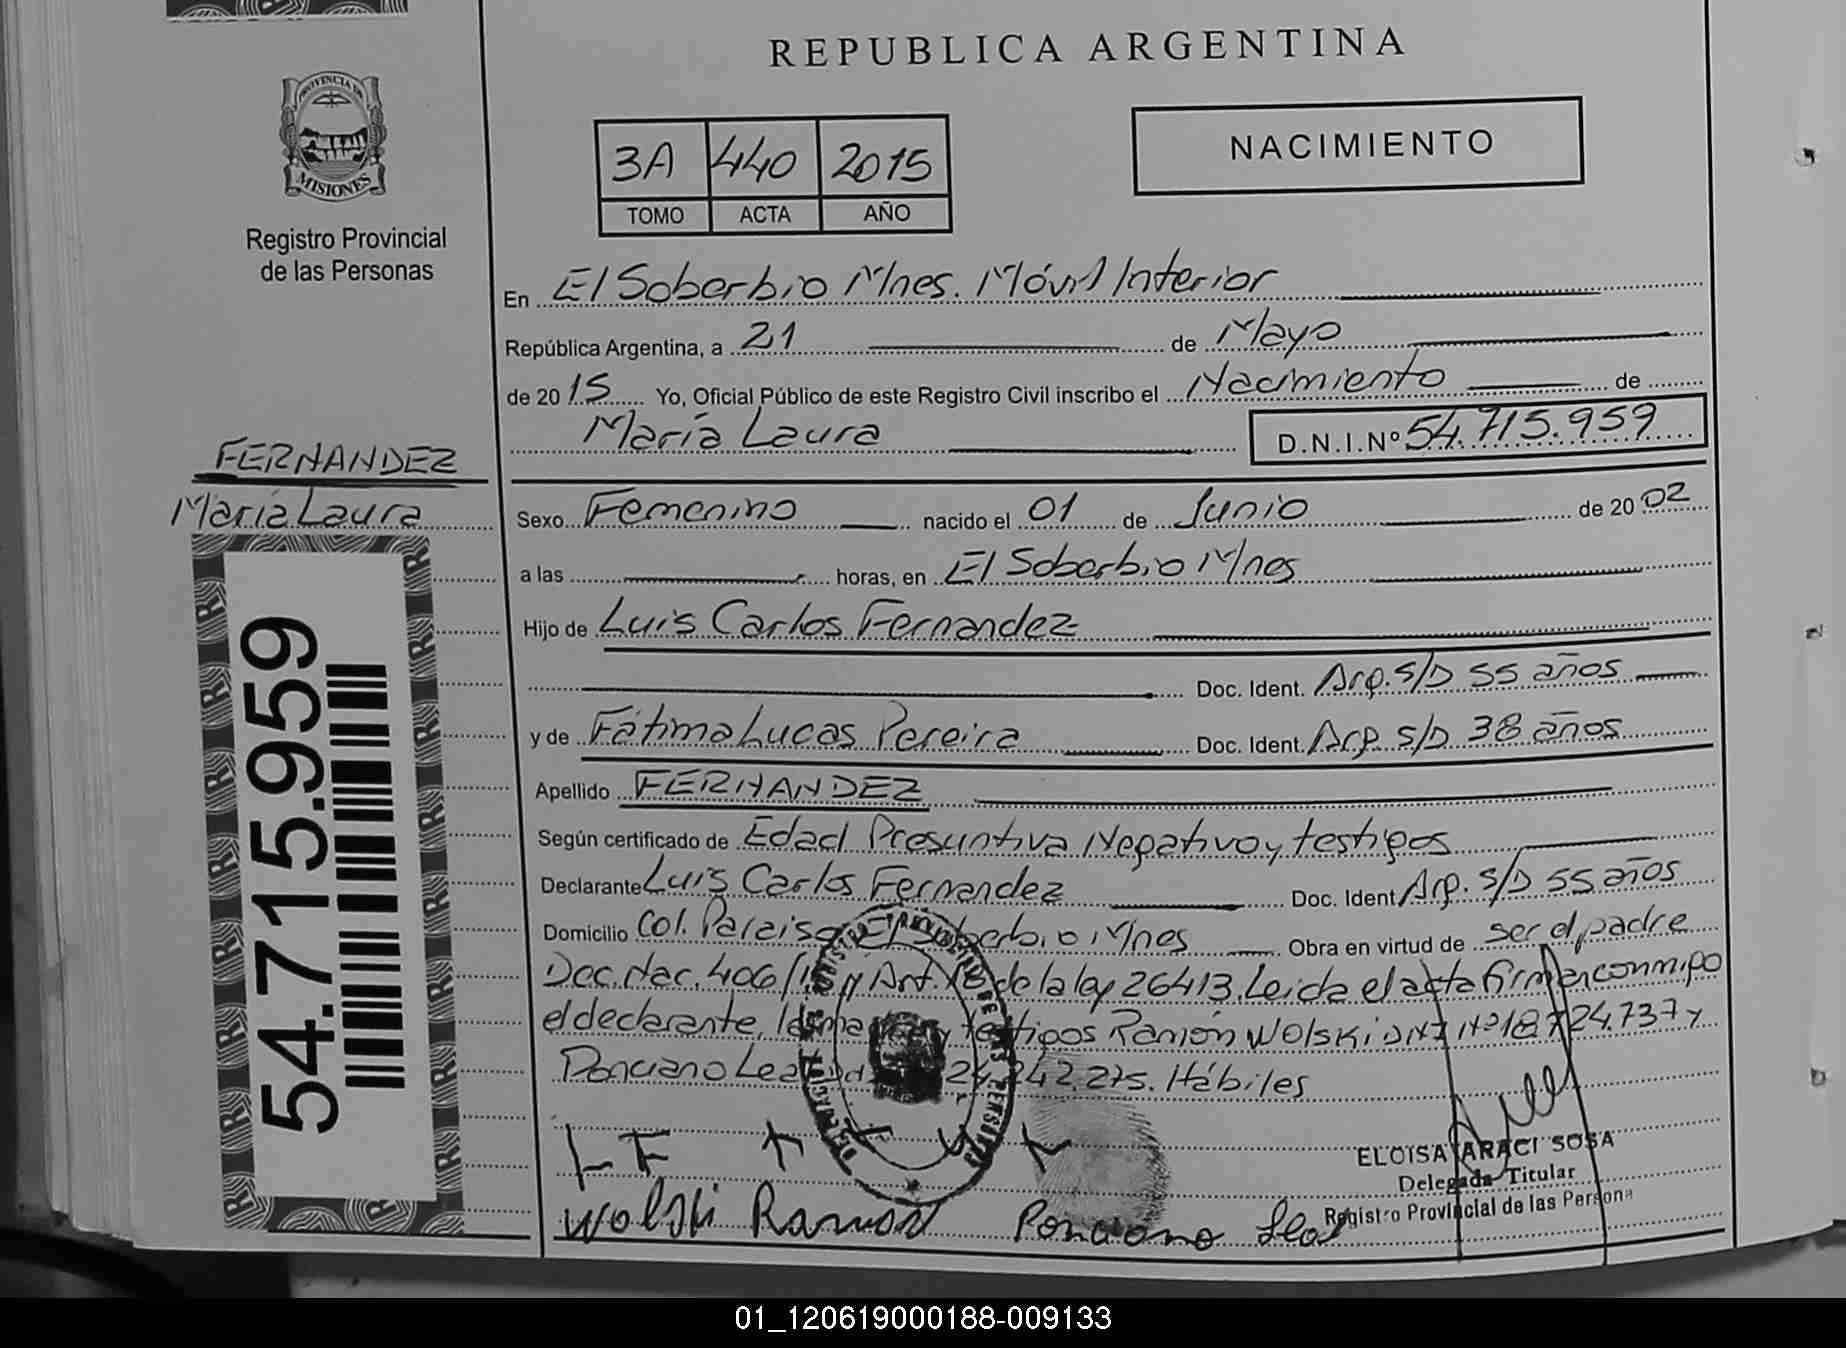 REPUBLICA ARGENTINA
PROVINCIA DE
MISIONES
Registro Provincial
de las Personas
3A 440 2015
TOMO ACTA AÑO
NACIMIENTO
En El Soberbio Mnes. Móvil Interior
República Argentina, a 21 de Mayo
de 2015 Yo, Oficial Público de este Registro Civil inscribo el Nacimiento de
María Laura D.N.I.Nº 54.715.959
FERNANDEZ
María Laura
54.715.959
Sexo Femenino nacido el 01 de Junio de 2002
a las horas, en El Soberbio Mnes
Hijo de Luis Carlos Fernandez
Doc. Ident. Arg. S/D 55 años
y de Fátima Lucas Pereira Doc. Ident. Arg. S/D 38 años
Apellido FERNANDEZ
Según certificado de Edad Presuntiva Negativo y testigos
Declarante Luis Carlos Fernandez Doc. Ident Arg. S/D 55 años
Domicilio Col. Paraiso El Soberbio Mnes Obra en virtud de ser el padre
Dec. Nac. 406/15 y Art. de la ley 26413. Leida el acta firman conmigo
el declarante, la y testigos Ramón Wolski DNI Nº 18.724.737 y
Ponciano 242.275. Hábiles
LF
Wolski Ramon Ponciano
ELOISA ARACI SOSA
Delegada Titular
Registro Provincial de las Persona
01_120619000188-009133